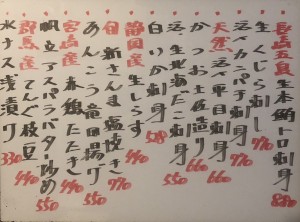 長崎五島 生本鮪トロ刺身 880
生くじら刺し 770
活〆カンパチ刺身 770
天然 活〆車目刺身 660
かつお土佐造り 660
活〆生地だこ刺身
白いか刺身 528
静岡産 生しらす 440
目新さんま塩焼き 770
あんこう竜田揚げ 550
宮崎産 赤鶏たたき 550
帆立アスパラバター炒め 550
群馬産 てんぐ枝豆 440
水ナス浅漬り 330